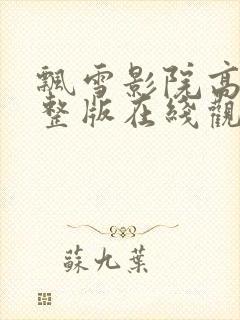 飄雪影院高
整版在綫觀
蘇九葉